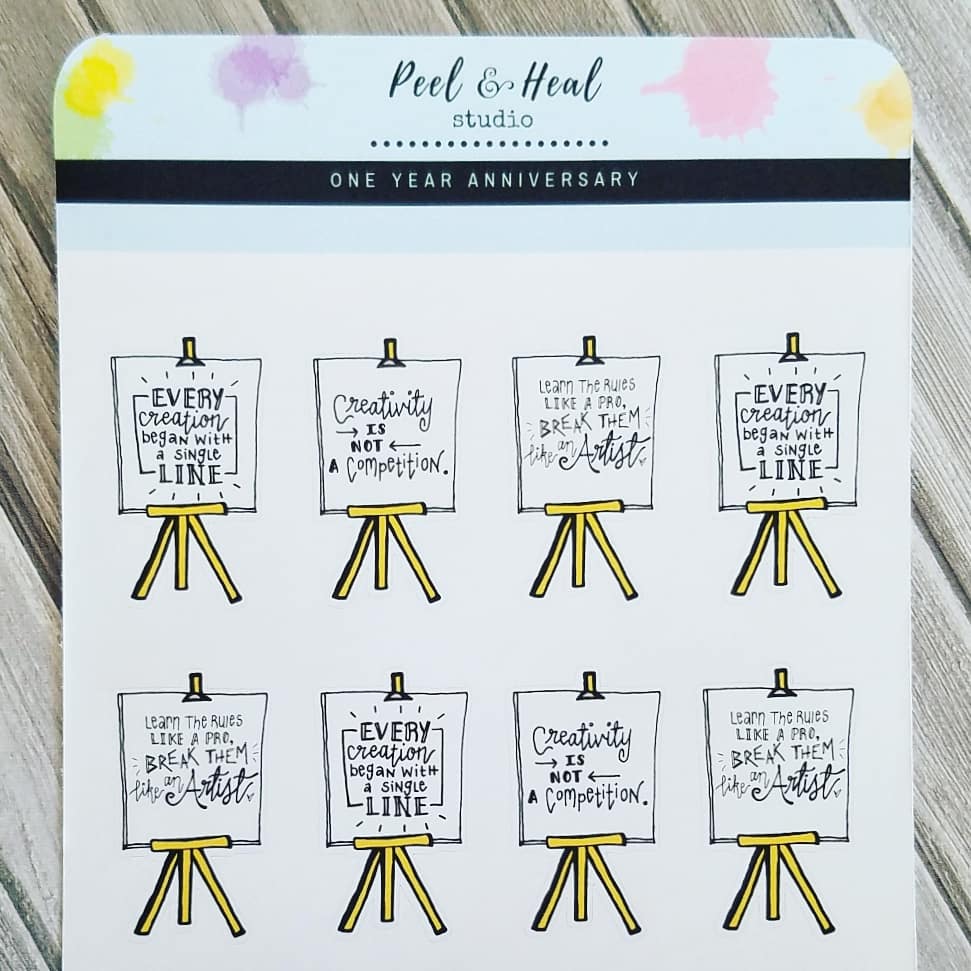 Peel & Heal
studio
ONE YEAR ANNIVERSARY
EVERY
creation
began with
a single
LINE
Creativity
→ IS
NOT ←
A Competition.
Learn The Rules
LIKE A PRO,
BREAK THEM
like an Artist.
EVERY
creation
began with
a single
LINE
Learn The Rules
LIKE A PRO,
BREAK THEM
like an Artist.
EVERY
creation
began with
a single
LINE
Creativity
→ IS
NOT ←
A Competition.
Learn The Rules
LIKE A PRO,
BREAK THEM
like an Artist.